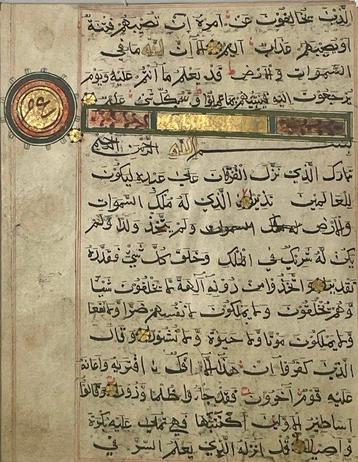 الذين يخالفون عن امره ان تصيبهم فتنة
او يصيبهم عذاب اليم الا ان لله ما في
السموات والارض قد يعلم ما انتم عليه ويوم
يرجعون اليه فينبئهم بما عملوا والله بكل شيء عليم
بسم الله الرحمن الرحيم
تبارك الذي نزل الفرقان على عبده ليكون
للعالمين نذيرا الذي له ملك السموات
والارض ولم يتخذ ولدا ولم
يكن له شريك في الملك وخلق كل شيء فقدره
تقديرا واتخذوا من دونه الهة لا يخلقون شيئا
وهم يخلقون ولا يملكون لانفسهم ضرا ولا نفعا
ولا يملكون موتا ولا حيوة ولا نشورا وقال
الذين كفروا ان هذا الا افك افتريه واعانه
عليه قوم اخرون فقد جاؤا ظلما وزورا وقالوا
اساطير الاولين اكتتبها فهي تملى عليه بكرة
واصيلا قل انزله الذي يعلم السر في